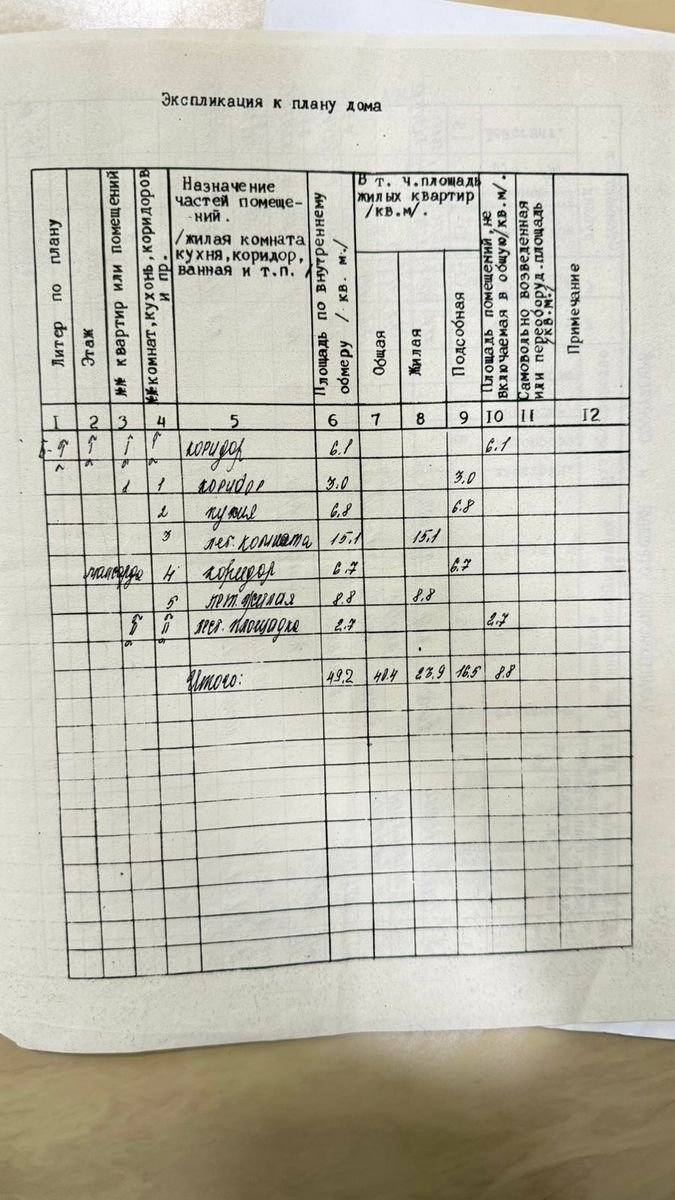 Экспликация к плану дома
Литер по плану
Этаж
№№ квартир или помещений
№№ комнат, кухонь, коридоров и пр.
Назначение
частей помеще-
-ний.
/жилая комната
кухня, коридор,
ванная и т.п. /
Площадь по внутреннему
обмеру / кв. м./
В т. ч. площадь
жилых квартир
/кв.м/.
Общая
Жилая
Подсобная
Площадь помещений, не
включаемая в общую/кв.м/.
Самовольно возведенная
или переоборуд. площадь
/кв.м./
Примечание
I 2 3 4 5 6 7 8 9 IO II I2
I I I коридор 6.1 6.1
1 1 коридор 3.0 3.0
2 кухня 6.8 6.8
3 лет. комната 15.1 15.1
мансарда 4 коридор 6.7 6.7
5 лет. жилая 8.8 8.8
II лест. площадка 2.7 2.7
Итого: 49.2 40.4 23.9 16.5 8.8